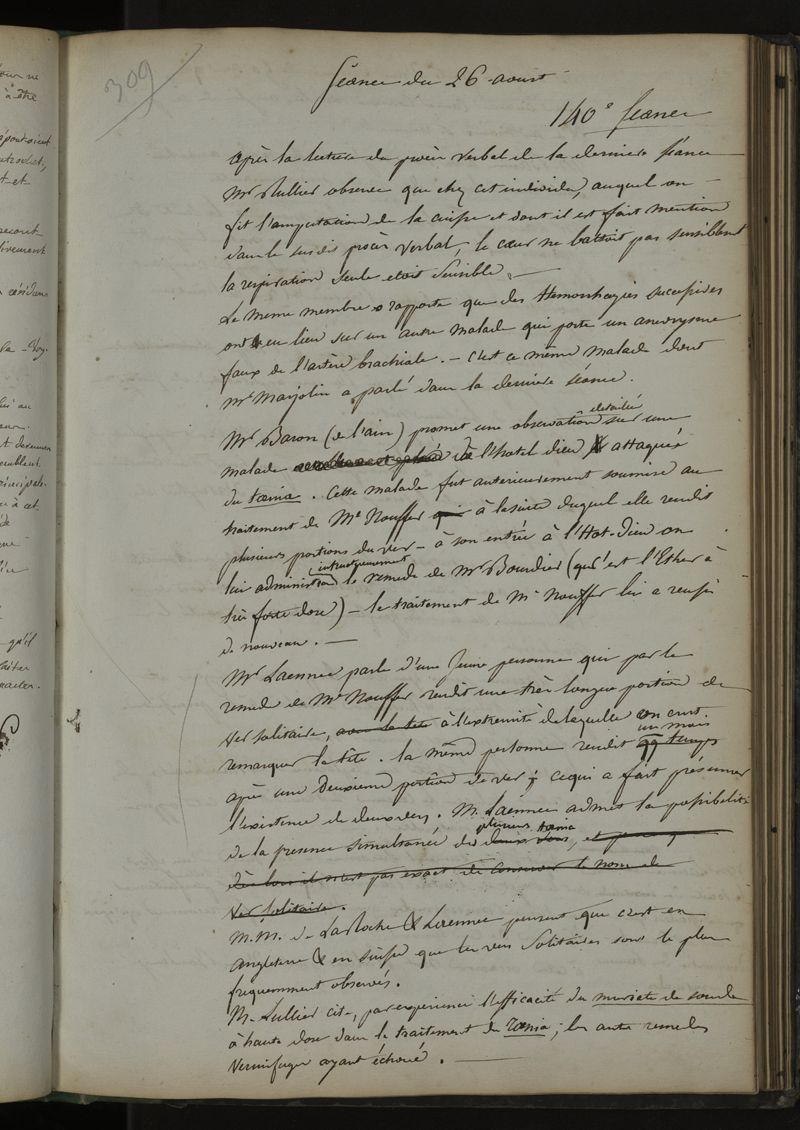 309
Séance du 26 aoust
140e séance
après la lecture du procès verbal de la derniere séance
Mr Rullier observe que chez cet individu, auquel on
fit l'amputation de la cuisse et dont il est fait mention
dans le susdit procès verbal, le cœur ne battoit pas sensiblement
la respiration seule etoit sensible. —
Le meme membre rapporte que des hemorrhagies successives
ont eu lieu sur un autre malade qui porte un anevrysme
faux de l'artère brachiale. — C'est ce même malade dont
Mr Marjolin a parlé dans la derniere séance.
Mr Baron (de l'ain) promet une observation detaillée sur une
malade de l'hotel dieu attaquée
du tænia. Cette malade fut anterieurement soumise au
traitement de Me Nouffer à la suite duquel elle rendit
plusieurs portions du ver — à son entrée à l'Hot-Dieu on
lui administra infructueusement le remede de Mr Bourdier (qui est l'Ether à
très forte dose) — le traitement de Me Nouffer lui a reussi
de nouveau. —
Mr Laennec parle d'une jeune personne qui par le
remede de Me Nouffer rendit une très longue portion de
ver solitaire, avec la tete à l'extremité de laquelle on crut
remarquer la tête. la même personne rendit qq temps un mois
après une deuxieme portion de ver; ce qui a fait présumer
l'existence de deux vers. M. Laennec admet la possibilité
de la presence simultanée de deux vers plusieurs tænia, et
dès lors il n'est pas exact de conserver le nom de
ver solitaire.
M.M. de LaRoche & Laennec pensent que c'est en
angleterre & en suisse que les vers solitaires sont le plus
frequemment observés.
M. Rullier cite, par experience l'efficacité du muriate de soude
à haute dose dans le traitement du Tænia; les autres remedes
vermifuges ayant échoué. —